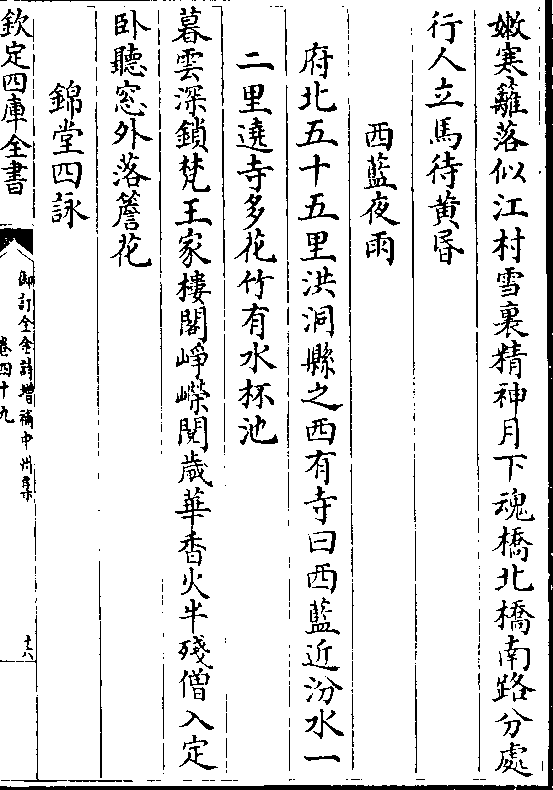 嫩寒籬落似江村雪裏精神月下魂橋北橋南路分處
行人立馬待黄昬
西藍夜雨
府北五十五里洪洞縣之西有寺曰西藍近汾水一
二里遶寺多花竹有水杯池
暮雲深鎖梵王家樓閣崢嶸閱歲華香火半殘僧入定
卧聽窓外落簷花
錦堂四詠
欽定四庫全書
御訂全金詩增補中州集
卷四十九
十六